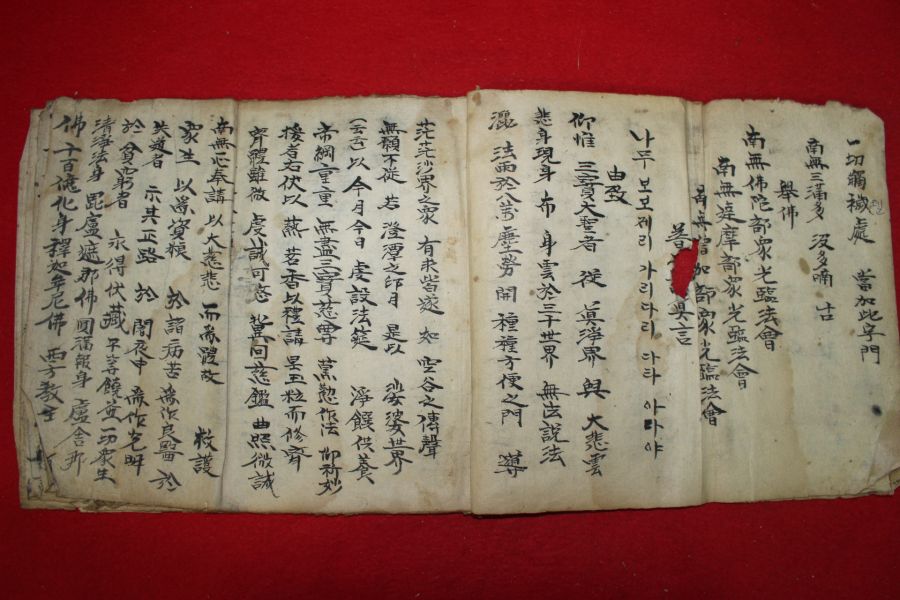 一切觸穢處 當加此字門
南無三滿多 沒多喃
擧佛
南無佛陀部衆光臨法會
南無達摩部衆光臨法會
南無僧伽部衆光臨法會
普 眞言
나무 보보제리 가리다리 다타 아다야
由致
仰惟 三寶大聖者 從 眞淨界 興 大悲雲
悲身現身 布 身雲於三千世界 無法說法
灑 法雨於八萬塵勞 開 種種方便之門 導
茫茫沙界之衆 有求皆遂 如 空谷之傳聲
無願不從 若 澄潭之印月 是以 娑婆世界
(云云) 以 今月今日 虔設法筵 淨饌供養
帝網重重 無盡三寶慈尊 薰懃作法 仰祈妙
援者 右伏以 蓺茗香以禮請 呈玉粒而修齋
齋體雖微 虔誠可愍 冀回慈鑑 曲照微誠
南無一心奉請 以大慈悲 而爲體故 救護
衆生 以爲資粮 於諸病苦 爲作良醫 於
失道者 示其正路 於 闇夜中 爲作光明
於 貧窮者 永得伏藏 平等饒益一切衆生
清淨法身 毘盧遮那佛 圓滿報身 盧舍那
佛 千百億化身 釋迦牟尼佛 西方教主